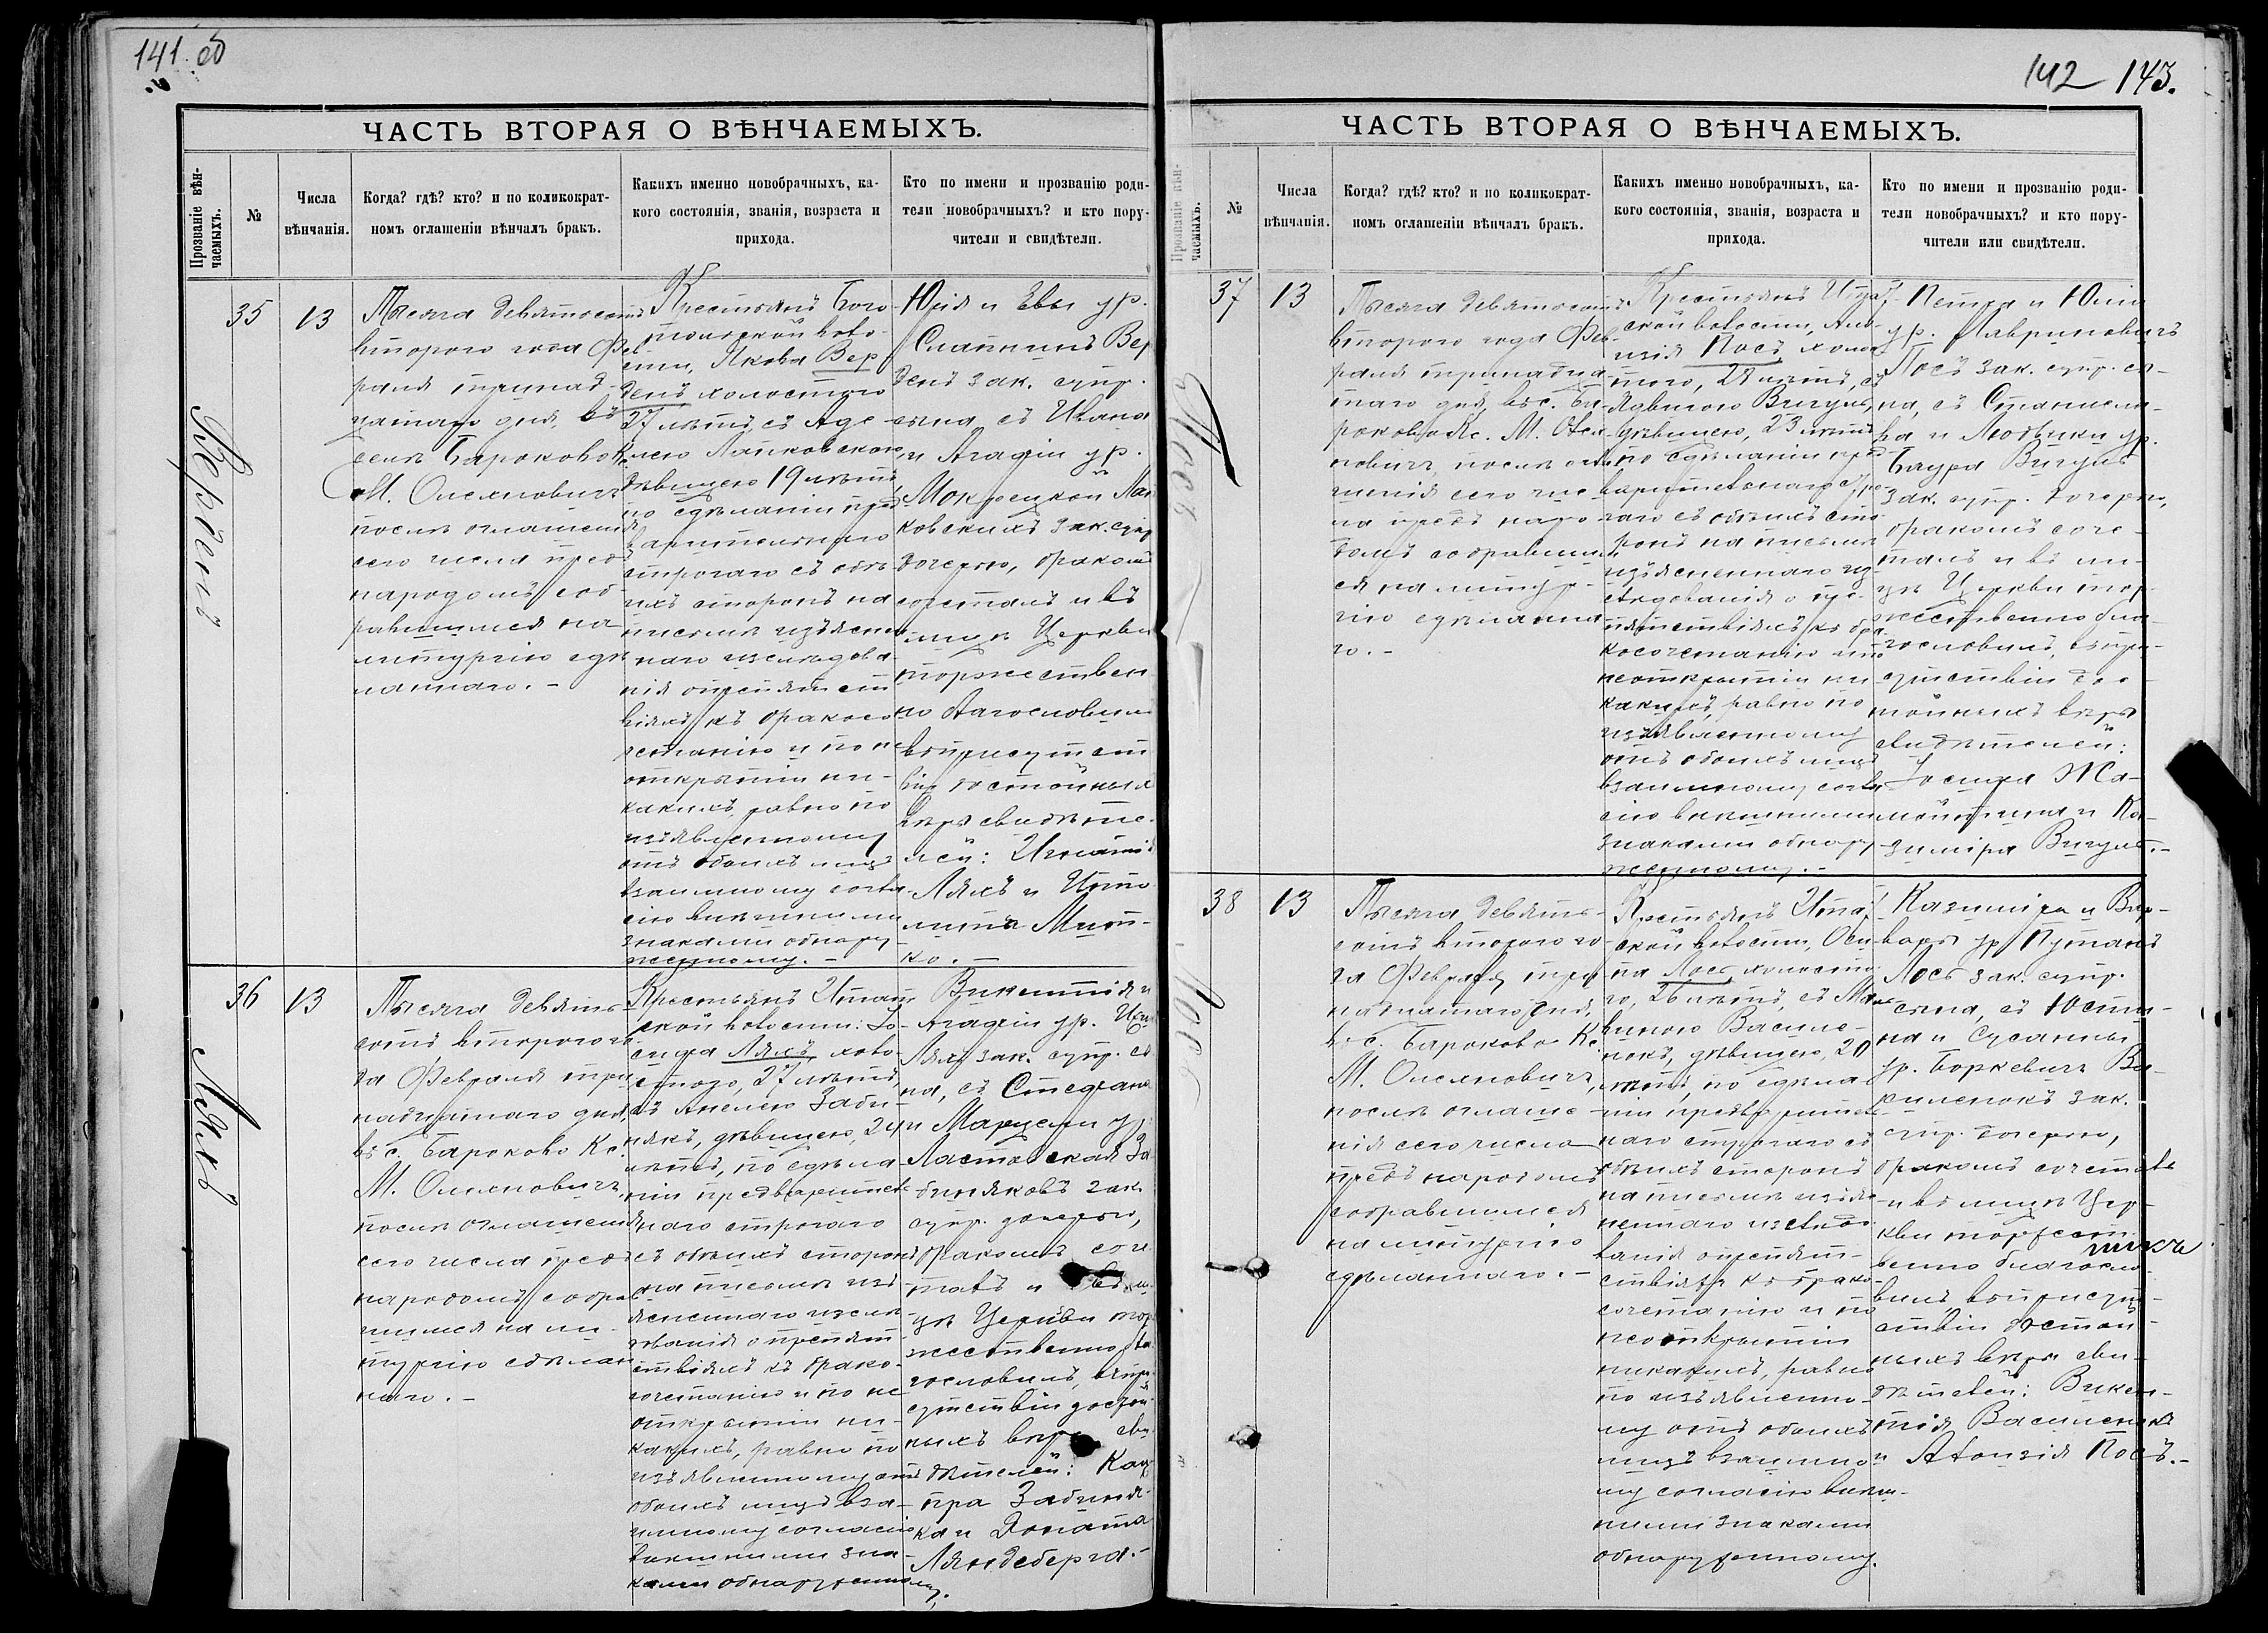 141 об
ЧАСТЬ ВТОРАЯ О ВѢНЧАЕМЫХЪ.
Прозваніе вѣн-
чаемыхъ.
№
Числа
вѣнчанія.
Когда? гдѣ? кто? и по коликократ-
номъ оглашеніи вѣнчалъ бракъ.
Какихъ именно новобрачныхъ, ка-
кого состоянія, званія, возраста и
прихода.
Кто по имени и прозванію роди-
тели новобрачныхъ? и кто пору-
чители и свидѣтели.
35
13
Тысяча девятьсотъ
второго года Фев
раля тринад-
цатаго дня, въ
селѣ Бароково Кс.
М. Олехновичъ
послѣ оглашенія
сего числа предъ
народомъ соб
равшимся на
литургію сдѣ
ланнаго. -
Крестьянъ Бого
воло-
сти, Якова Вер
денъ холостого
27 лѣтъ, съ Аде-
лею Лайковскою
дѣвицею 19 лѣтъ
по сдѣланіи пред
варительнаго
строгаго съ обѣ
ихъ сторонъ на
письмѣ изъяснен
наго изслѣдова
нія о препятст
віяхъ къ бракосо
четанію и по не
открытіи ни-
какихъ, равно по
изъявленному
отъ обоихъ лицъ
взаимному согла
сію внѣшними
знаками обнару
женному. -
Юрія и Евы ур.
Вер
денъ зак. супр.
сына, съ Ивана
и Агафіи ур.
Мокрецкой Лай
ковскихъ зак. супр
дочерью, бракомъ
сочеталъ и въ
лицѣ Церкви
торжествен
но благословилъ
въ присутст
віи достойныхъ
вѣры свидѣте
лей: Игнатія
Ляхъ и Иппо
лита
ко. -
36
13
Тысяча девять-
сотъ второго го
да Февраля три
надцатаго дня,
въ с. Бароково Кс.
М. Олехновичъ,
послѣ оглашенія
сего числа предъ
народомъ собрав
шимся на ли-
тургію сдѣлан
наго. -
Крестьянъ
ской волости: Іо-
сифа Ляхъ, холо-
стого, 27 лѣтъ,
съ Анелею Заби-
някъ, дѣвицею, 24
лѣтъ, по сдѣла-
ніи предварител
наго строгаго
съ обѣихъ сторонъ
на письмѣ изъ
ясненнаго изслѣ
дованія о препят
ствіяхъ къ брако-
сочетанію и по не
открытіи ни-
какихъ, равно по
изъявленному отъ
обоихъ лицъ вза-
имному согласію
внѣшними зна-
ками обнаруженно
му.
Викентія и
Агафіи ур.
Ляхъ зак. супр. сы
на, съ Стефана
и Марцели ур.
Ластовская За
биняковъ зак.
супр. дочерью,
бракомъ соче
талъ и въ ли
цѣ Церкви тор
жественно бла
гословилъ, въ при
сутствіи достой
ныхъ вѣры сви
дѣтелей:
Забиня-
ка и Доната
Ляндсберга. -
Верденъ
Ляхъ
142 143.
ЧАСТЬ ВТОРАЯ О ВѢНЧАЕМЫХЪ.
Прозваніе вѣн-
чаемыхъ.
№
Числа
вѣнчанія.
Когда? гдѣ? кто? и по коликократ-
номъ оглашеніи вѣнчалъ бракъ.
Какихъ именно новобрачныхъ, ка-
кого состоянія, званія, возраста и
прихода.
Кто по имени и прозванію роди-
тели новобрачныхъ? и кто пору-
чители или свидѣтели.
37
13
Тысяча девятьсотъ
второго года Фев
раля тринадца
таго дня, въ с. Ба-
роково Кс. М. Олех
новичъ, послѣ огла
шенія сего чис
ла предъ наро
домъ собравшим
ся на литур-
гію сдѣланна
го. -
Крестьянъ
ской волости,
Лосъ, холос
того, 28 лѣтъ, съ
Ядвигою Вигуль,
дѣвицею, 23 лѣтъ
по сдѣланіи пред
варительнаго стро
гаго съ обѣихъ сто
ронъ на письмѣ
изъясненнаго из
слѣдованія о пре
пятствіяхъ къ бра
косочетанію и по
неоткрытіи ни
какихъ, равно по
изъявленному
отъ обоихъ лицъ
взаимному согла
сію внѣшними
знаками обнару
женному. -
Петра и Юліи
ур. Лавриновичъ
Лосъ зак. супр. сы-
на, съ Станисла-
ва и Людвики ур.
Вигуль
зак. супр. дочерью,
бракомъ соче-
талъ и въ ли-
цѣ Церкви тор
жественно бла
гословилъ, въ при-
сутствіи дос-
тойныхъ вѣры
свидѣтелей:
Іосифа
и Ка-
зиміра Вигуль. -
38
13
Тысяча девять-
сотъ второго го-
да Февраля три
надцатаго дня,
въ с. Бароково Кс.
М. Олехновичъ,
послѣ оглаше-
нія сего числа
предъ народомъ
собравшимся
на литургію
сдѣланнаго. -
Крестьянъ
ской волости, Оси
па Лосъ, холосто-
го, 26 лѣтъ, съ
Василе-
нокъ, дѣвицею, 20
лѣтъ, по сдѣла
ніи предварител
наго строгаго съ
обѣихъ сторонъ
на письмѣ изъяс
неннаго изслѣдо
ванія о препят-
ствіяхъ къ брако-
сочетанію и по
неоткрытіи
никакихъ, равно
по изъявленно-
му отъ обоихъ
лицъ взаимно-
му согласію внѣш-
ними знаками
обнаруженному.
Казиміра и Вар-
вары ур.
Лосъ зак. супр.
сына, съ Юсти-
на и Сусанны
ур. Боркевичъ Ва-
силенокъ зак.
супр. дочерью,
бракомъ сочеталъ
и въ лицѣ Цер-
кви торжест
венно благосло-
вилъ въ присут-
ствіи достой-
ныхъ вѣры сви-
дѣтелей: Викен-
тія Василенка
и Лосъ. -
Лосъ
Лосъ